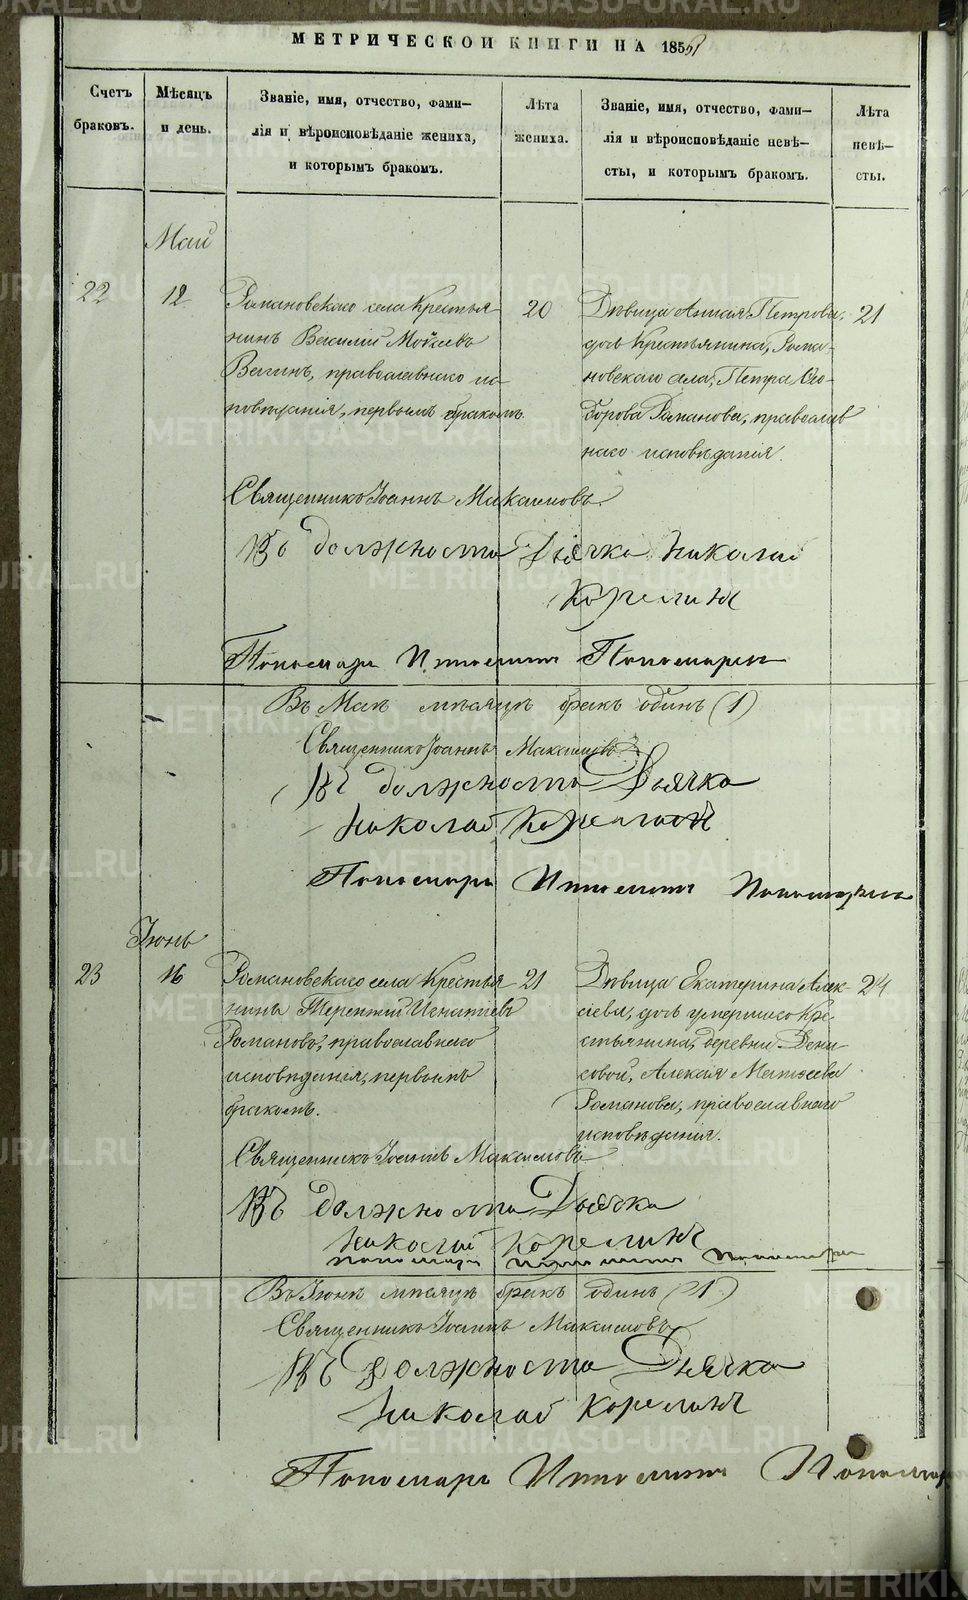 МЕТРИЧЕСКОЙ КНИГИ НА 1858
Счетъ браковъ.
Мѣсяцъ и день.
Званіе, имя, отчество, фами-
лія и вѣроисповѣданіе жениха,
и которымъ бракомъ.
Лѣта жениха.
Званіе, имя, отчество, фами-
лія и вѣроисповѣданіе невѣ-
сты, и которымъ бракомъ.
Лѣта невѣ-
сты.
Май
22
12
Романовскаго села Крестья-
нинъ Василий Мойсеевъ
Вагинъ, православнаго ис-
повѣданія, первымъ бракомъ.
20
Дѣвица Анна Петрова,
дочь Крестьянина, Рома-
новскаго села, Петра Ѳео-
дорова Романова, православ
наго исповѣданія.
21
Священникъ Іоаннъ Максимовъ.
Въ должности Дьячка Николай
Корелинъ
Пономарь Ипполитъ Пономаревъ
Въ Маѣ мѣсяцѣ бракъ одинъ (1)
Священникъ Іоаннъ Максимовъ
Въ должности Дьячка
Николай Корелинъ
Пономарь Ипполитъ Пономаревъ
Іюнь
23
16
Романовскаго села Крестья
нинъ Терентий Игнатіевъ
Романовъ, православнаго
исповѣданія, первымъ
бракомъ.
21
Дѣвица Екатерина Алек-
сіева, дочь умершаго Кре-
стьянина, деревни Дени-
совой, Алексія Матѳеева
Романова, православнаго
исповѣданія.
24
Священникъ Іоаннъ Максимовъ
Въ должности Дьячка
Николай Корелинъ
Пономарь Ипполитъ Пономаревъ
Въ Іюнѣ мѣсяцѣ бракъ одинъ (1)
Священникъ Іоаннъ Максимовъ
Въ должности Дьячка
Николай Корелинъ
Пономарь Ипполитъ
METRIKI.GASO-URAL.RU